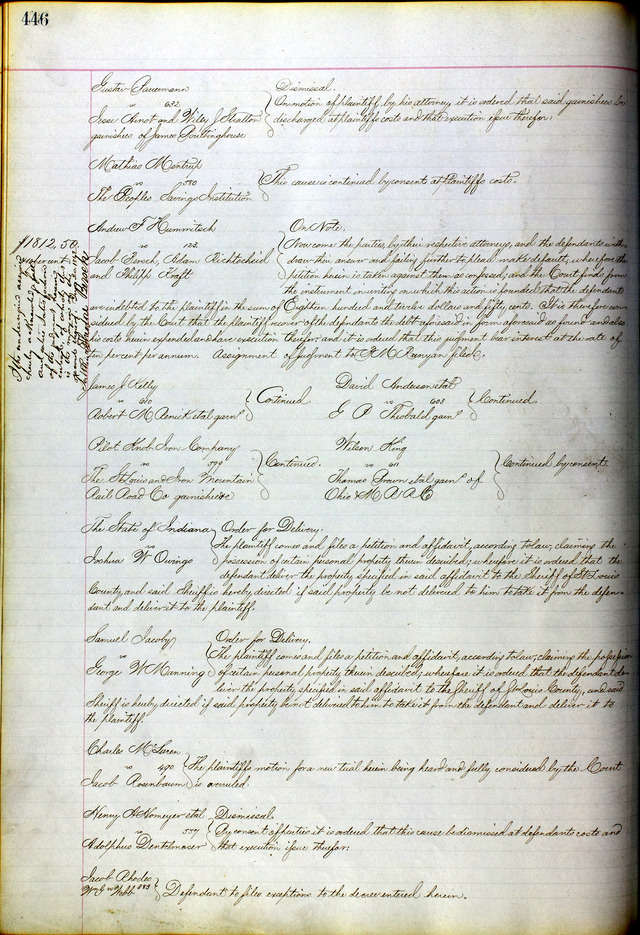 446
Gustav Bauermann
vs 632
Jesse Arnot and Wiley J Stratton
garnishees of James Poultinghouse
Dismissal.
On motion of plaintiff, by his attorney, it is ordered that said garnishees be
discharged at plaintiffs costs and that execution issue therefor
Mathias Mentrup
vs 590
The Peoples Savings Institution
This cause is continued by consent at Plaintiffs costs.
$1812.50.
Andrew F Hummitsch
vs
Jacob Lorch, Adam Richtscheid
and Philipp Kraft
On Note.
Now come the parties, by their respective attorneys, and the defendants with
draw their answer and failing further to plead make default, wherefore the
petition herein is taken against them as confessed; and the Court finds from
the instrument in writing on which this action is founded, that the defendants
are indebted to the plaintiff in the sum of Eighteen hundred and twelve dollars and fifty cents. It is therefore con
sidered by the Court that the plaintiff recover of the defendants the debt aforesaid in form aforesaid as found and also
his costs herein expended and have execution therefor, and it is ordered that this judgment bear interest at the rate of
ten percent per annum. Assignment of judgment to R M Runyan filed.
James J Kelly
vs 610
Robert M Renick et al garns
Continued
David Anderson et al
vs 603
G P Theobald garns
Continued
Pilot Knob Iron Company
vs 599
The St Louis and Iron Mountain
Rail Road Co garnishee
Continued.
Wilson King
vs 611
Thomas Brown et al garns of
Ohio & M R R Co
Continued by consent
The State of Indiana
vs
Joshua W Owings
Order for Delivery.
The plaintiff comes and files a petition and affidavit, according to law, claiming the
possession of certain personal property therein described; wherefore it is ordered that the
defendant deliver the property specified in said affidavit to the Sheriff of St Louis
County, and said Sheriff is hereby directed if said property be not delivered to him to take it from the defen-
dant and deliver it to the plaintiff.
Samuel Jacoby
vs
George W Manning
Order for Delivery.
The plaintiff comes and files a petition and affidavit, according to law, claiming the possession
of certain personal property therein described; wherefore it is ordered that the defendant de
liver the property specified in said affidavit to the Sheriff of St Louis County, and said
Sheriff is hereby directed if said property be not delivered to him to take it from the defendant and deliver it to
the plaintiff.
Charles McLaren
vs 490
Jacob Rosenbaum
The plaintiffs motion for a new trial herein being heard and fully considered by the Court
is overruled.
Henry H Homeyer et al
vs 577
Adolphus Dentelmoser
Dismissal
By consent of parties it is ordered that this cause be dismissed at defendants costs and
that execution issue therefor.
Jacob Rhodes
vs 553
W G Webb
Defendant files exceptions to the decree entered herein.